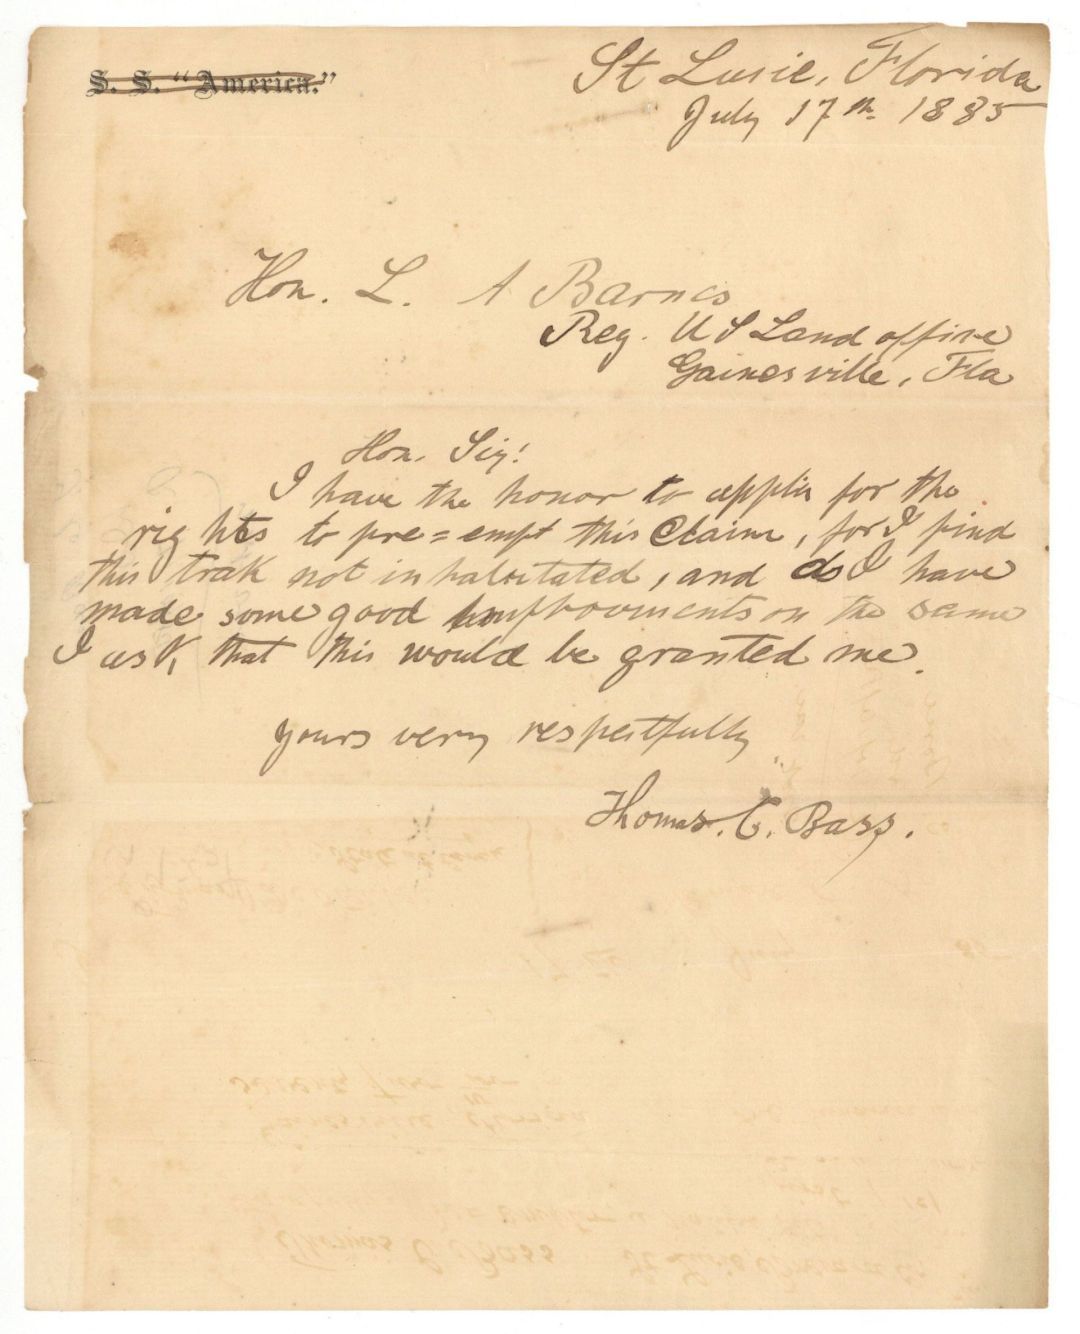 S. S. "America."
St Lusie, Florida
July 17th 1885
Hon. L. A Barnes
Reg. U S Land offise
Gainesville, Fla
Hon. Sir!
I have the honor to applis for the
rights to pre=empt this Claim, for I find
this trak not inhabitated, and as I have
made some good improovments on the same
I ask, that this would be granted me.
yours very respectfully
Thomas. C. Bass.